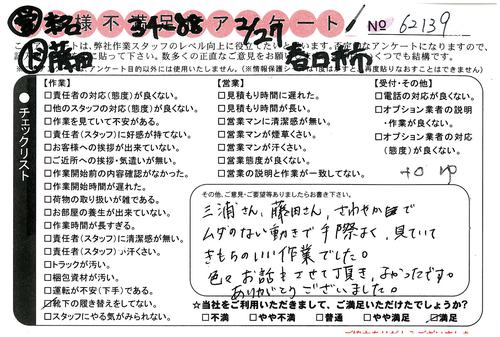 お客様不満足アンケート №62139
2/27
藤田 春日井市
このアンケートは、弊社作業スタッフのレベル向上に役立てたい
チェックリスト
【作業】
□責任者の対応(態度)が良くない。
□他のスタッフの対応(態度)が良くない。
□作業を見ていて不安がある。
□責任者(スタッフ)に好感が持てない。
□お客様への挨拶が出来ていない。
□ご近所への挨拶・気遣いが無い。
□作業開始前の内容確認がなかった。
□作業開始時間が遅れた。
□荷物の取り扱いが雑である。
□お部屋の養生が出来ていない。
□作業時間が長すぎる。
□責任者(スタッフ)に清潔感が無い。
□責任者(スタッフ)が汗くさい。
□トラックが汚い。
□梱包資材が汚い。
□運転が不安(下手)である。
□靴下の履き替えをしてない。
□スタッフにやる気がみられない。
【営業】
□見積もり時間に遅れた。
□見積もり時間が長い。
□営業マンに清潔感が無い。
□営業マンが煙草くさい。
□営業マンが汗くさい。
□営業態度が良くない。
□営業の説明と作業が一致してない。
【受付・その他】
□電話の対応が良くない。
□オプション業者の説明・作業が良くない。
□オプション業者の対応(態度)が良くない。
その他、ご意見・ご要望等ありましたらお書き下さい。
三浦さん、藤田さん、さわやかで
ムダのない動きで手際よく、見ていて
きもちのいい作業でした。
色々お話もさせて頂き、よかったです。
ありがとうございました。
☆当社をご利用いただきまして、ご満足いただけたでしょうか?
□不満 □やや不満 □普通 □やや満足 ☑満足